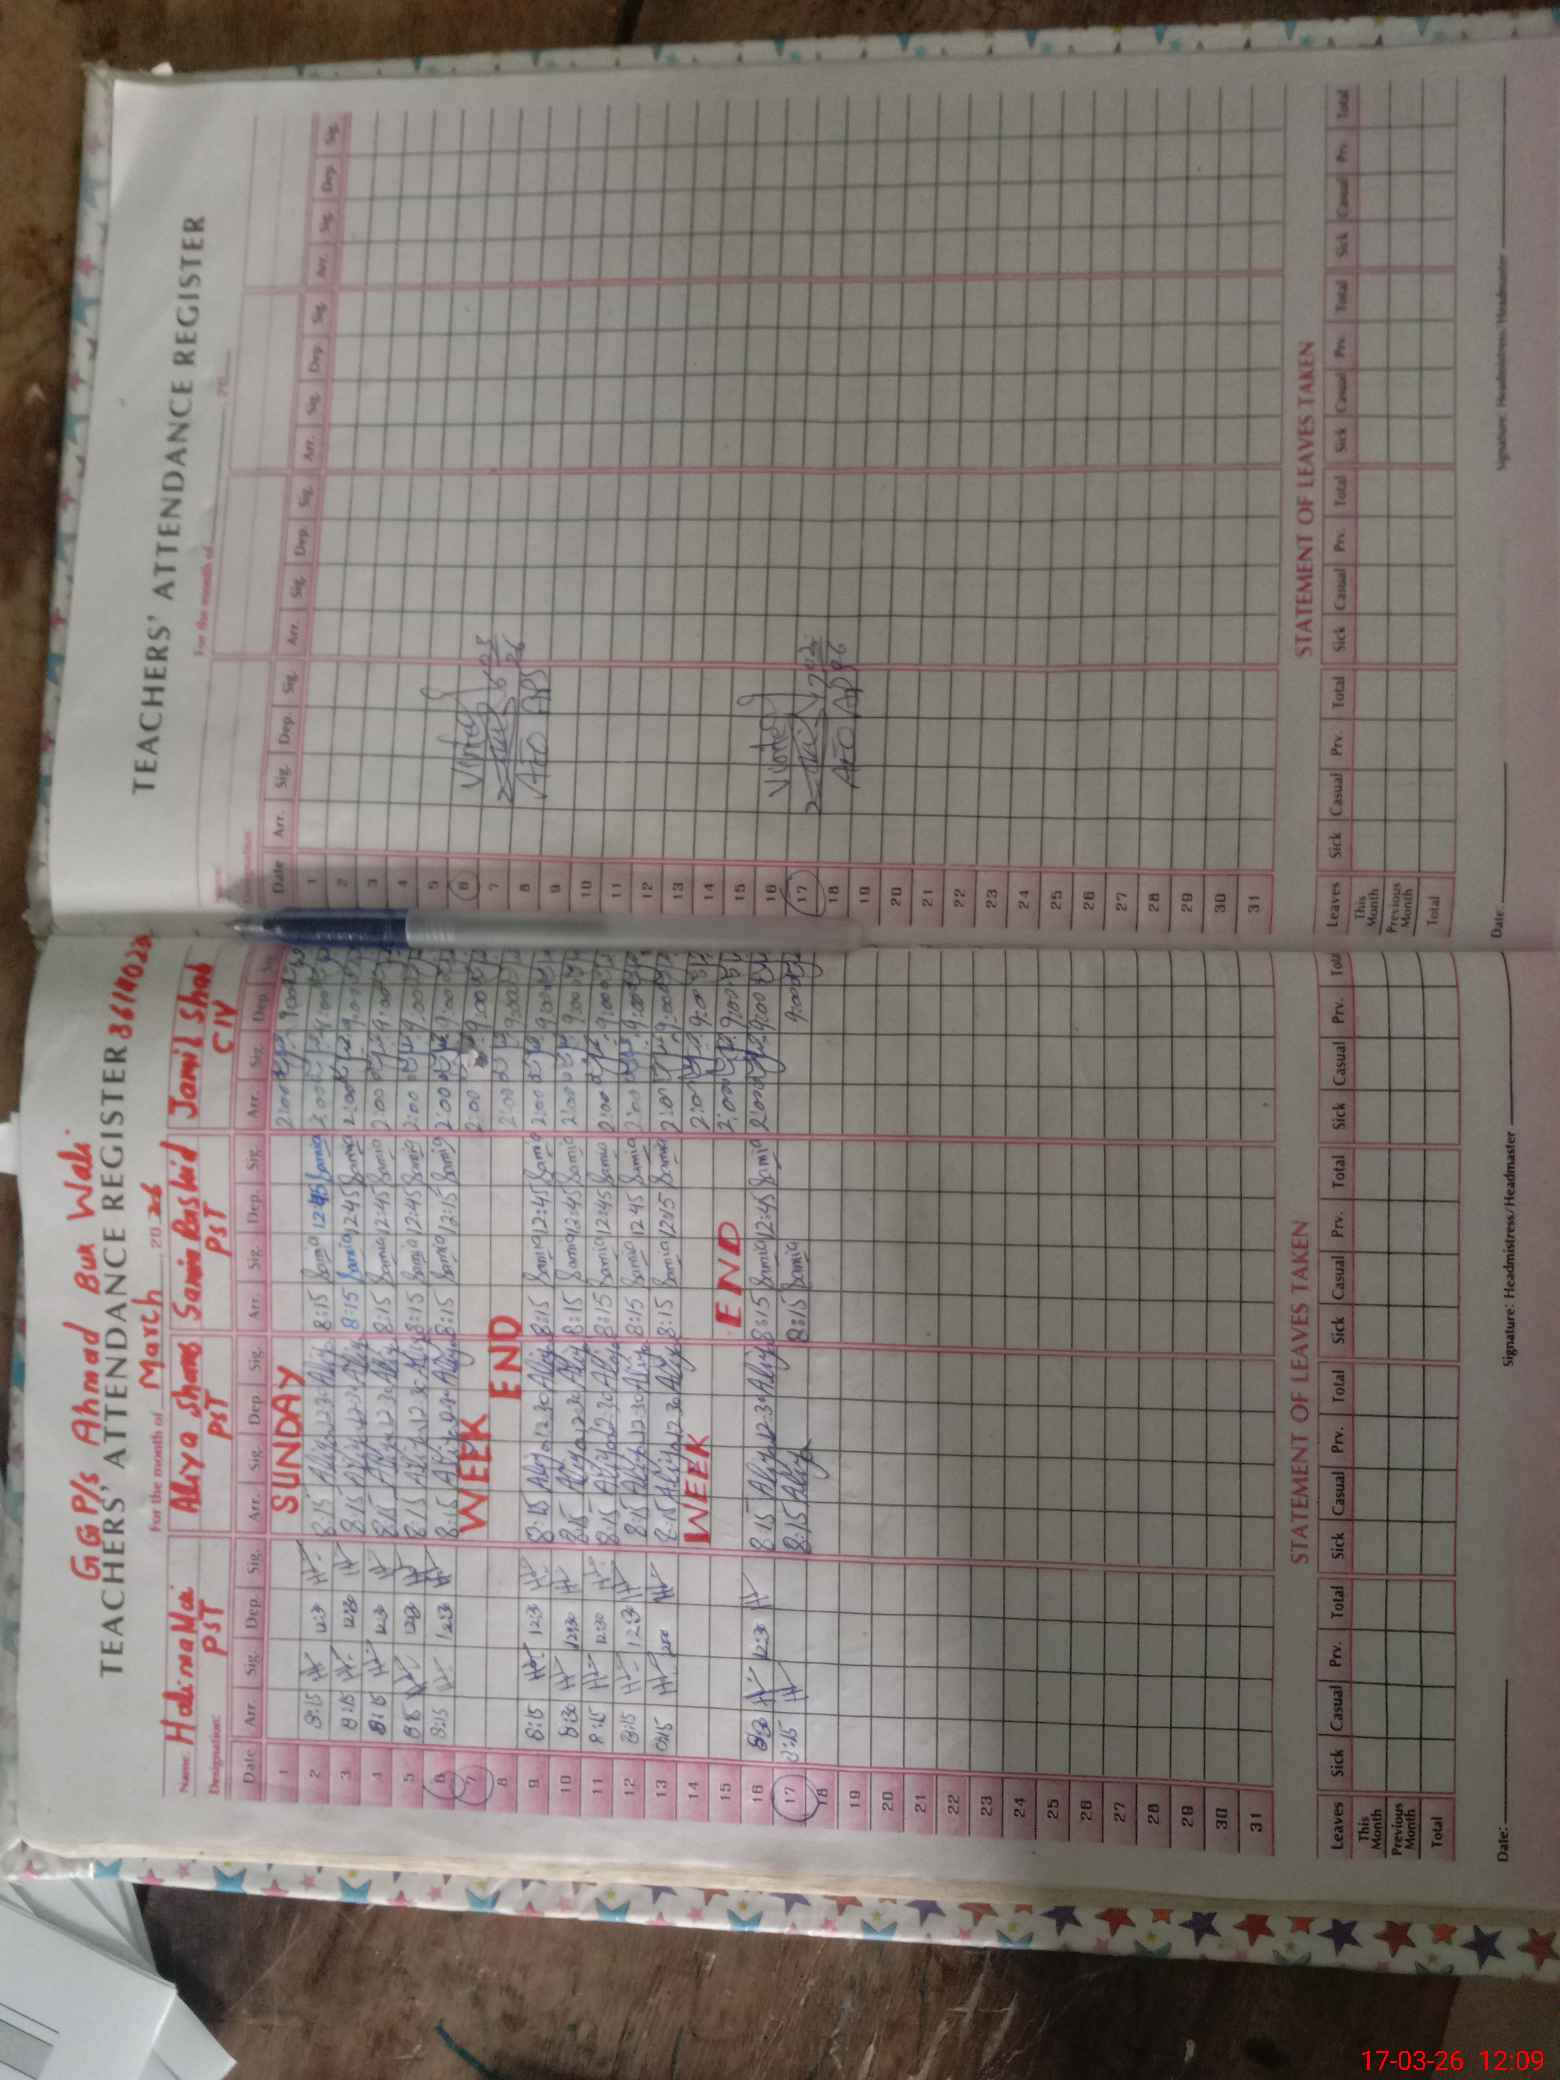 GGP/s Ahmad Bux Wali
TEACHERS' ATTENDANCE REGISTER
For the month of March 20 26
Name: Halima Mai Aliya Shams Samia Rashid Jamil Shah
Designation: PST PST PST C IV
Date Arr. Sig. Dep. Sig. Arr. Sig. Dep. Sig. Arr. Sig. Dep. Sig. Arr. Sig. Dep.
1 SUNDAY 2:00 9:00
2 8:15 12:30 8:15 Aliya 12:30 Aliya 8:15 Samia 12:45 Samia 2:00 9:00
3 8:15 12:30 8:15 Aliya 12:30 Aliya 8:15 Samia 12:45 Samia 2:00 9:00
4 8:15 12:30 8:15 Aliya 12:30 Aliya 8:15 Samia 12:45 Samia 2:00 9:00
5 8:15 12:30 8:15 Aliya 12:30 Aliya 8:15 Samia 12:45 Samia 2:00 9:00
6 8:15 12:30 8:15 Aliya Aliya 8:15 Samia 12:15 Samia 2:00 9:00
7 WEEK 2:00 9:00
8 END 2:00 9:00
9 8:15 12:30 8:15 Aliya 12:30 Aliya 8:15 Samia 12:45 Samia 2:00 9:00
10 8:30 12:30 8:15 Aliya 12:30 Aliya 8:15 Samia 12:45 Samia 2:00 9:00
11 8:15 12:30 8:15 Aliya 12:30 Aliya 8:15 Samia 12:45 Samia 2:00 9:00
12 8:15 12:30 8:15 Aliya 12:30 Aliya 8:15 Samia 12:45 Samia 2:00 9:00
13 8:15 8:15 Aliya 12:30 Aliya 8:15 Samia 12:45 Samia 2:00 9:00
14 WEEK 2:00 9:00
15 END 2:00 9:00
16 8:30 12:30 8:15 Aliya 12:30 Aliya 8:15 Samia 12:45 Samia 2:00 9:00
17 8:15 8:15 Aliya 8:15 Samia 9:00
18
19
20
21
22
23
24
25
26
27
28
29
30
31
STATEMENT OF LEAVES TAKEN STATEMENT OF LEAVES TAKEN
Leaves Sick Casual Prv. Total Sick Casual Prv. Total Sick Casual Prv. Total Sick Casual Prv.
This Month
Previous Month
Total
Date: Signature: Headmistress/Headmaster
TEACHERS' ATTENDANCE REGISTER
For the month of 20
Date Arr. Sig. Dep. Sig. Arr. Sig. Dep. Sig. Arr. Sig. Dep. Sig. Arr. Sig. Dep. Sig.
1
2
3
4
5
6 Visited
7
8 AEO
9
10
11
12
13
14
15
16 Visited
17
18 AEO
19
20
21
22
23
24
25
26
27
28
29
30
31
STATEMENT OF LEAVES TAKEN
Leaves Sick Casual Prv. Total Sick Casual Prv. Total Sick Casual Prv. Total Sick Casual Prv. Total
This Month
Previous Month
Total
Date: Signature: Headmistress/Headmaster
17-03-26 12:09